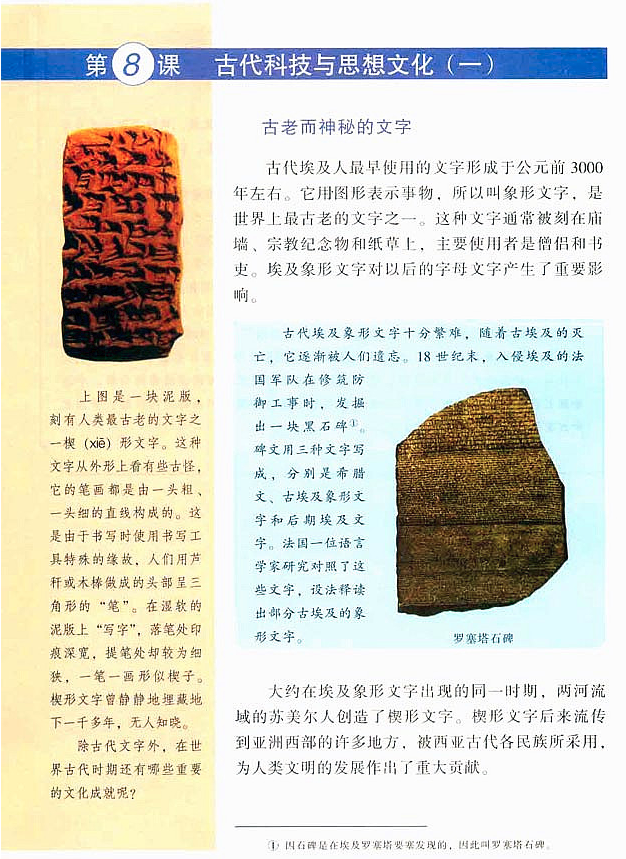 第8课 古代科技与思想文化(一)
古老而神秘的文字
古代埃及人最早使用的文字形成于公元前3000
年左右。它用图形表示事物,所以叫象形文字,是
世界上最古老的文字之一。这种文字通常被刻在庙
墙、宗教纪念物和纸草上,主要使用者是僧侣和书
吏。埃及象形文字对以后的字母文字产生了重要影
响。
古代埃及象形文字十分繁难,随着古埃及的灭
亡,它逐渐被人们遗忘。18世纪末,入侵埃及的法
国军队在修筑防
御工事时,发掘
出一块黑石碑①。
碑文用三种文字写
成,分别是希腊
文、古埃及象形文
字和后期埃及文
字。法国一位语言
学家研究对照了这
些文字,设法释读
出部分古埃及的象
形文字。
罗塞塔石碑
大约在埃及象形文字出现的同一时期,两河流
域的苏美尔人创造了楔形文字。楔形文字后来流传
到亚洲西部的许多地方,被西亚古代各民族所采用,
为人类文明的发展作出了重大贡献。
① 因石碑是在埃及罗塞塔要塞发现的,因此叫罗塞塔石碑。
上图是一块泥版,
刻有人类最古老的文字之
一楔(xiē)形文字。这种
文字从外形上看有些古怪,
它的笔画都是由一头粗、
一头细的直线构成的。这
是由于书写时使用书写工
具特殊的缘故,人们用芦
秆或木棒做成的头部呈三
角形的“笔”。在湿软的
泥版上“写字”,落笔处印
痕深宽,提笔处却较为细
狭,一笔一画形似楔子。
楔形文字曾静静地埋藏地
下一千多年,无人知晓。
除古代文字外,在世
界古代时期还有哪些重要
的文化成就呢?